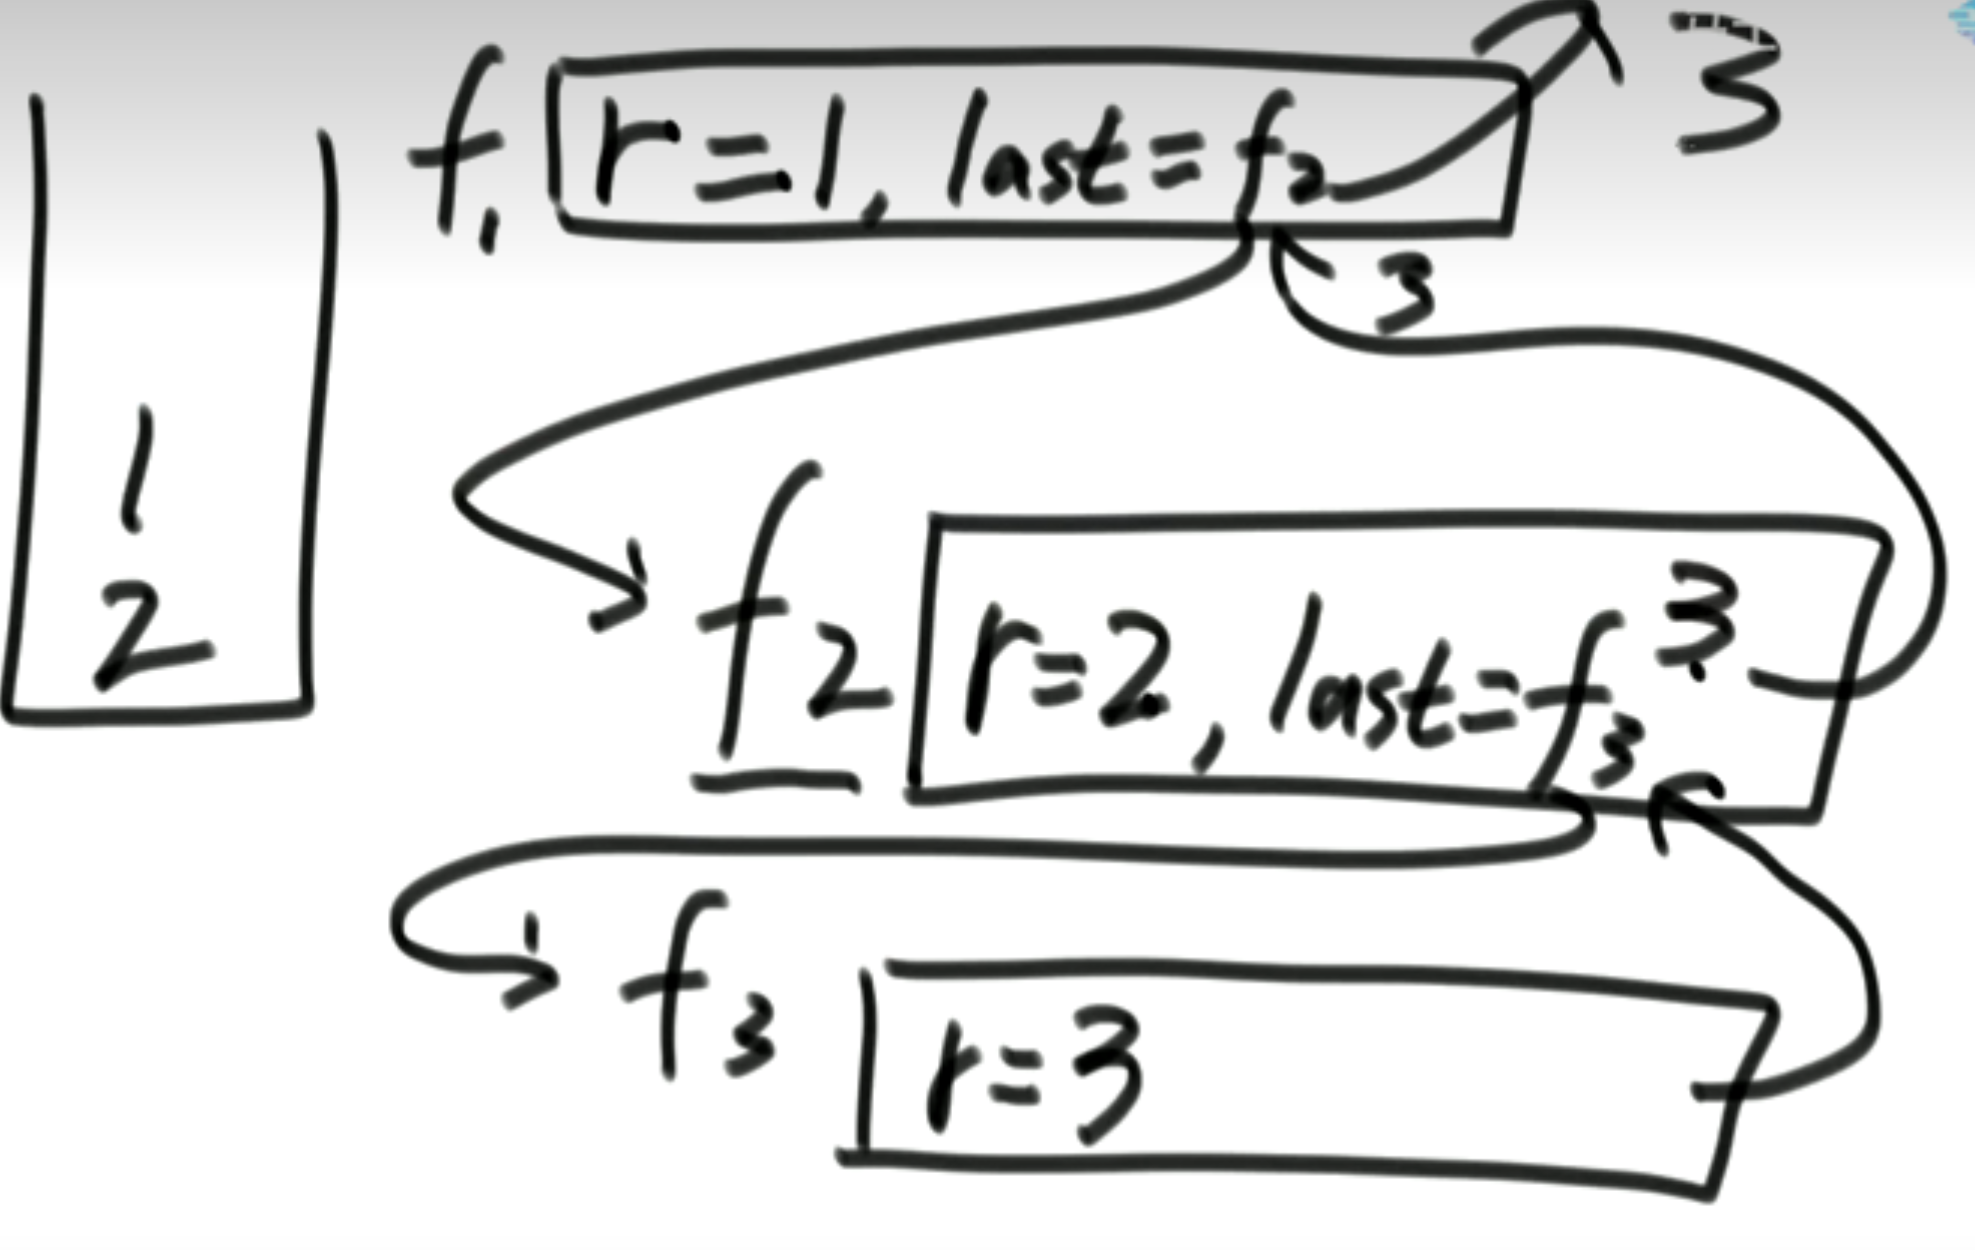 f1 r=1, last=f2 3
3
1
2
f2 r=2, last=f3 3
f3 r=3